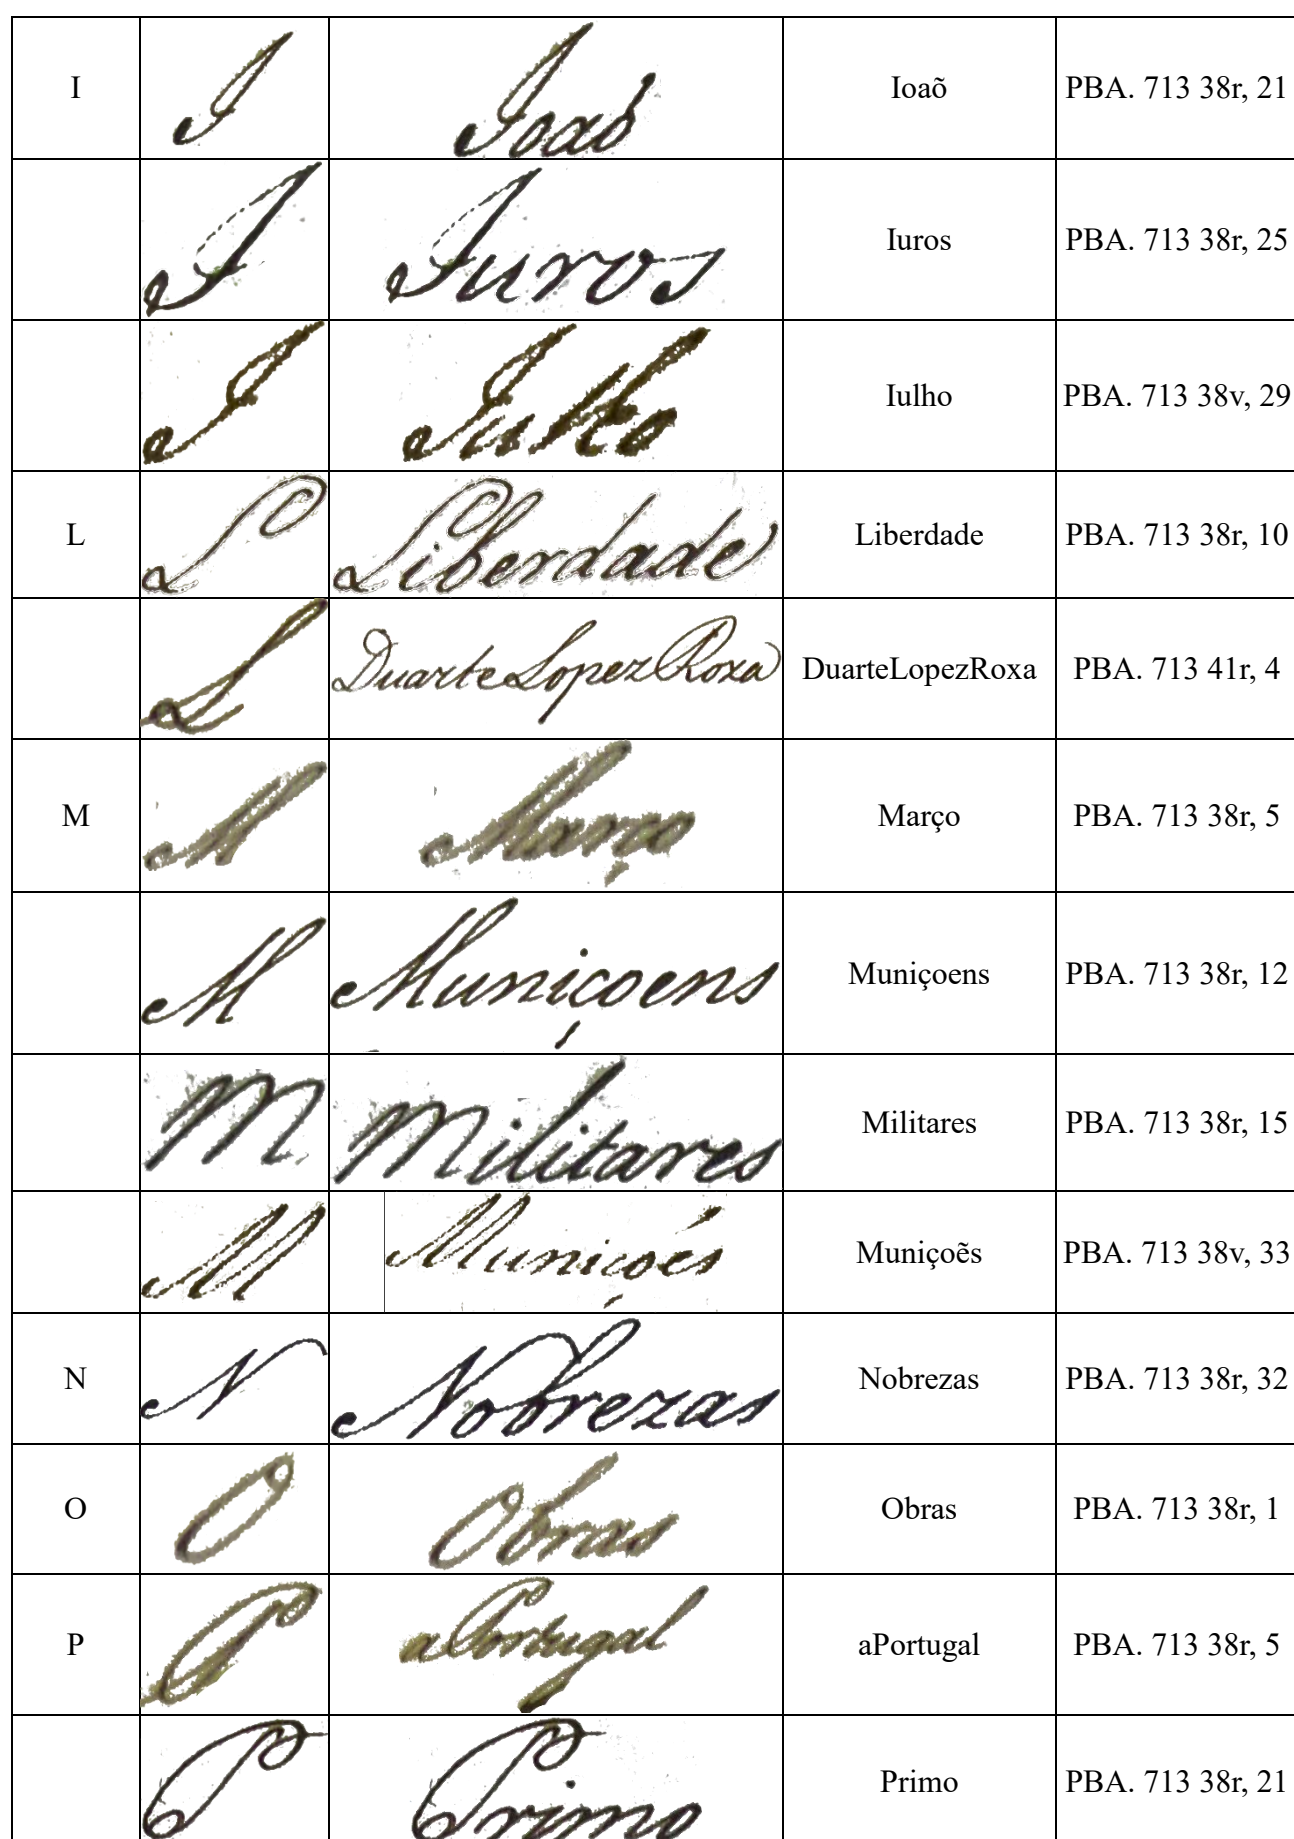 I I Ioaõ Ioaõ PBA. 713 38r, 21
I Iuros Iuros PBA. 713 38r, 25
I Iulho Iulho PBA. 713 38v, 29
L L Liberdade Liberdade PBA. 713 38r, 10
L DuarteLopezRoxa DuarteLopezRoxa PBA. 713 41r, 4
M M Março Março PBA. 713 38r, 5
M Muniçoens Muniçoens PBA. 713 38r, 12
M Militares Militares PBA. 713 38r, 15
M Muniçoẽs Muniçoẽs PBA. 713 38v, 33
N N Nobrezas Nobrezas PBA. 713 38r, 32
O O Obras Obras PBA. 713 38r, 1
P P aPortugal aPortugal PBA. 713 38r, 5
P Primo Primo PBA. 713 38r, 21